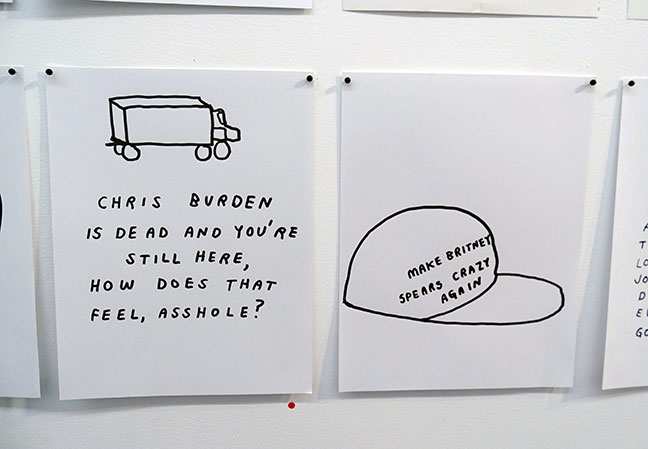 CHRIS BURDEN
IS DEAD AND YOU'RE
STILL HERE,
HOW DOES THAT
FEEL, ASSHOLE?
MAKE BRITNEY
SPEARS CRAZY
AGAIN